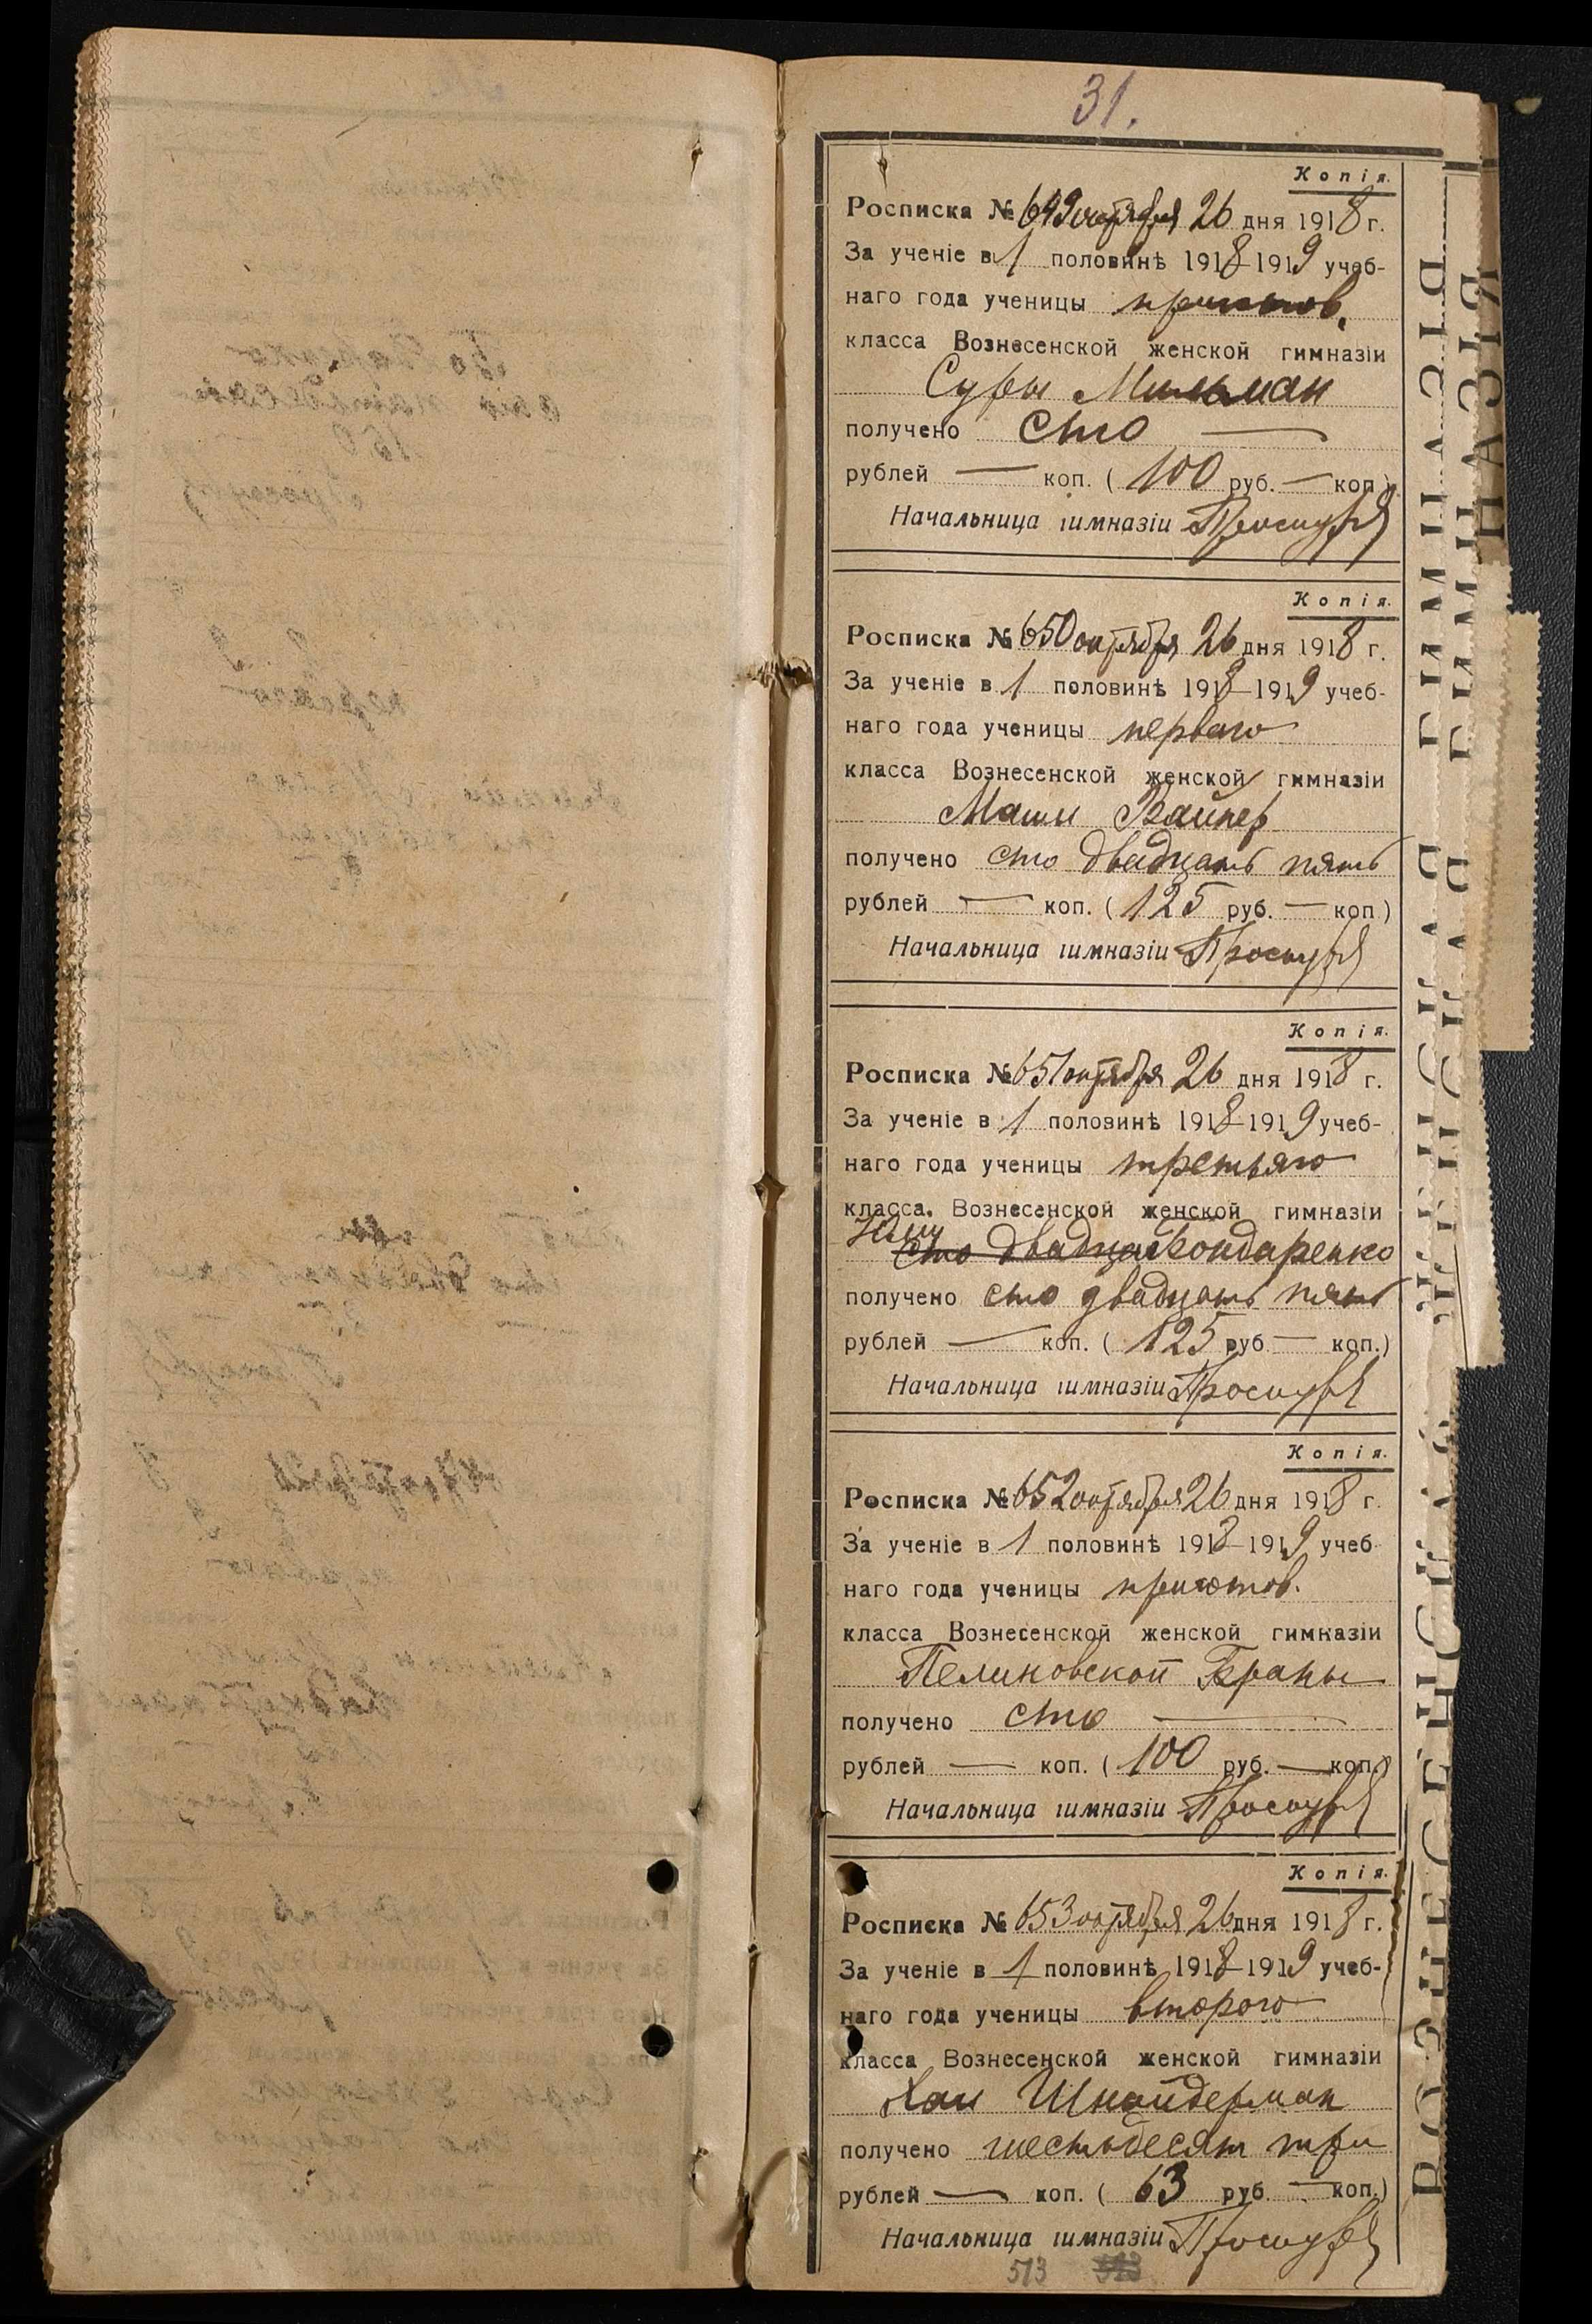 31.
Копія.
Росписка № 649 октября 26 дня 1918 г.
За ученіе в 1 половинѣ 1918-1919 учеб-
наго года ученицы приготов.
класса Вознесенской женской гимназіи
Суры Мильман
получено сто —
рублей — коп. ( 100 руб. — коп.)
Начальница гимназіи
Копія.
Росписка № 650 октября 26 дня 1918 г.
За ученіе в 1 половинѣ 1918-1919 учеб-
наго года ученицы перваго
класса Вознесенской женской гимназіи
Маши Вайнер
получено сто двадцать пять
рублей — коп. ( 125 руб. — коп.)
Начальница гимназіи
Копія.
Росписка № 651 октября 26 дня 1918 г.
За ученіе в 1 половинѣ 1918-1919 учеб-
наго года ученицы третьяго
класса. Вознесенской женской гимназіи
сто двадцат Бондаренко
получено сто двадцать пять
рублей — коп. ( 125 руб — коп.)
Начальница гимназіи
Копія.
Росписка № 652 октября 26 дня 1918 г.
За ученіе в 1 половинѣ 1918-1919 учеб
наго года ученицы приготов.
класса Вознесенской женской гимназіи
Пелиновской Браны
получено сто —
рублей — коп. ( 100 руб. — коп.)
Начальница гимназіи
Копія.
Росписка № 653 октября 26 дня 1918 г.
За ученіе в 1 половинѣ 1918-1919 учеб-
наго года ученицы второго
класса Вознесенской женской гимназіи
Хаи Шнайдерман
получено шестьдесят три
рублей — коп. ( 63 руб. — коп.)
Начальница гимназіи
513